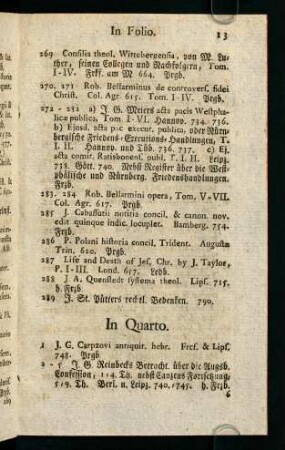 In Folio.
13
269 Consilia theol. Wittebergensia, von M. Lu-
ther, seinen Collegen und Nachfolgern, Tom.
I-IV. Frkf. am M 664. Prgb.
270. 271 Rob. Bellarminus de controvers. fidei
Christ. Col. Agr. 615. Tom. I-IV. Prgb.
272 - 282 a) J. G. Meiers acta pacis Westpha-
licæ publica, Tom. I-VI. Hannov. 734. 736.
b) Ejusd. acta pac execut. publico, oder Nürn-
bergische Friedens-Executions-Handlungen, T.
I. II. Hannov. und Tüb. 736. 737. c) Ej.
acta comit. Ratisbonens. publ. T. I. II. Leipz.
738. Gött. 740. Nebst Register über die West-
phälische und Nürnberg. Friedenshandlungen.
Frzb.
283. 284 Rob. Bellarmini opera, Tom. V-VII.
Col. Agr. 617. Prgb
285 J. Cabassutii notitia concil. & canon. nov.
edit quinque indic. locuplet. Bamberg. 754.
Frzb.
286 P. Polani historia concil. Trident. Augustæ
Trin. 620. Prgb.
287 Life and Death of Jes. Chr. by J. Taylor,
P. I-III. Lond. 657. Ledb.
288 J A. Quenstedt systema theol. Lips. 715.
h. Frzb.
289 J. St. Pütters rechtl. Bedenken. 790.
In Quarto.
1 J. G. Carpzovi antiquit. hebr. Frcf. & Lips.
748. Prgb
2 - 5 J. G. Reinbecks Betracht. über die Augsb.
Confession, 1-4. Th. nebst Canzens Fortsetzung,
5-9. Th. Berl. u. Leipz. 740.-745. h. Frzb.
6